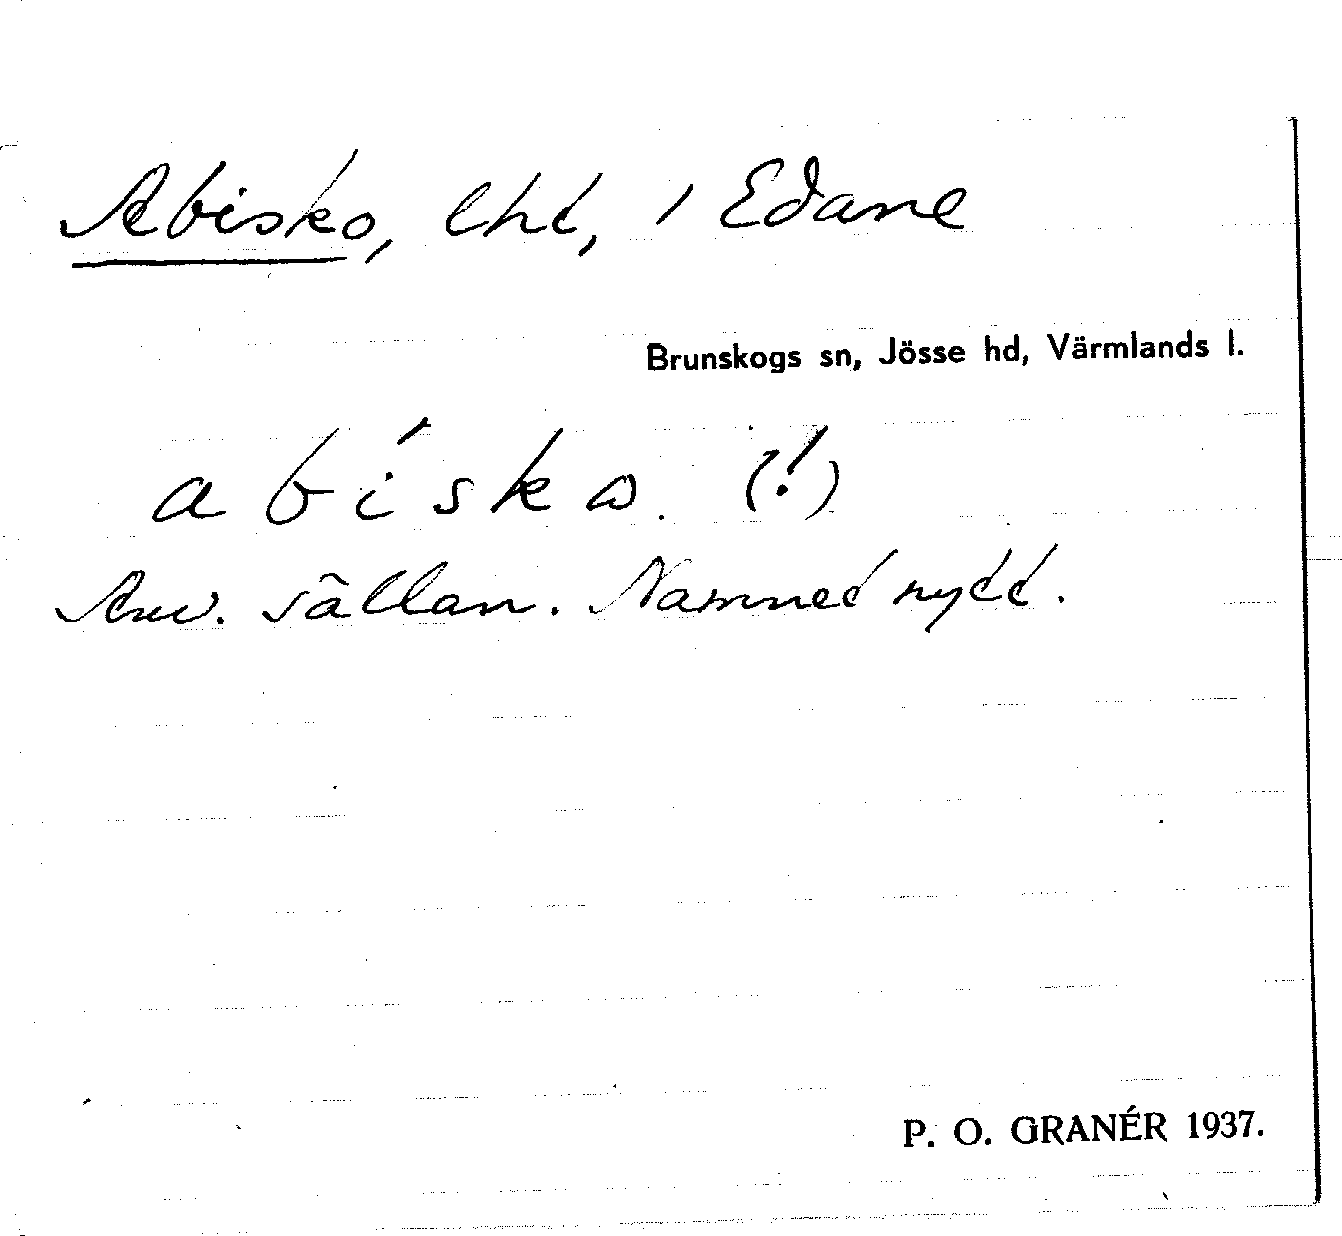 Abisko, lht, i Edane
Brunskogs sn, Jösse hd, Värmlands l.
abísko. (!)
Anv. sällan. Namnet nytt.
P. O. GRANÉR 1937.